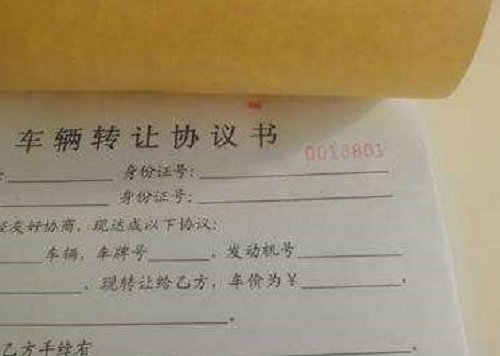 车辆转让协议书
0013801
：__________ 身份证号：__________
__________ 身份证号：__________
友好协商，现达成以下协议：
__________车辆，车牌号______，发动机号__________
__________，现转让给乙方，车价为￥__________。
乙方手续有__________